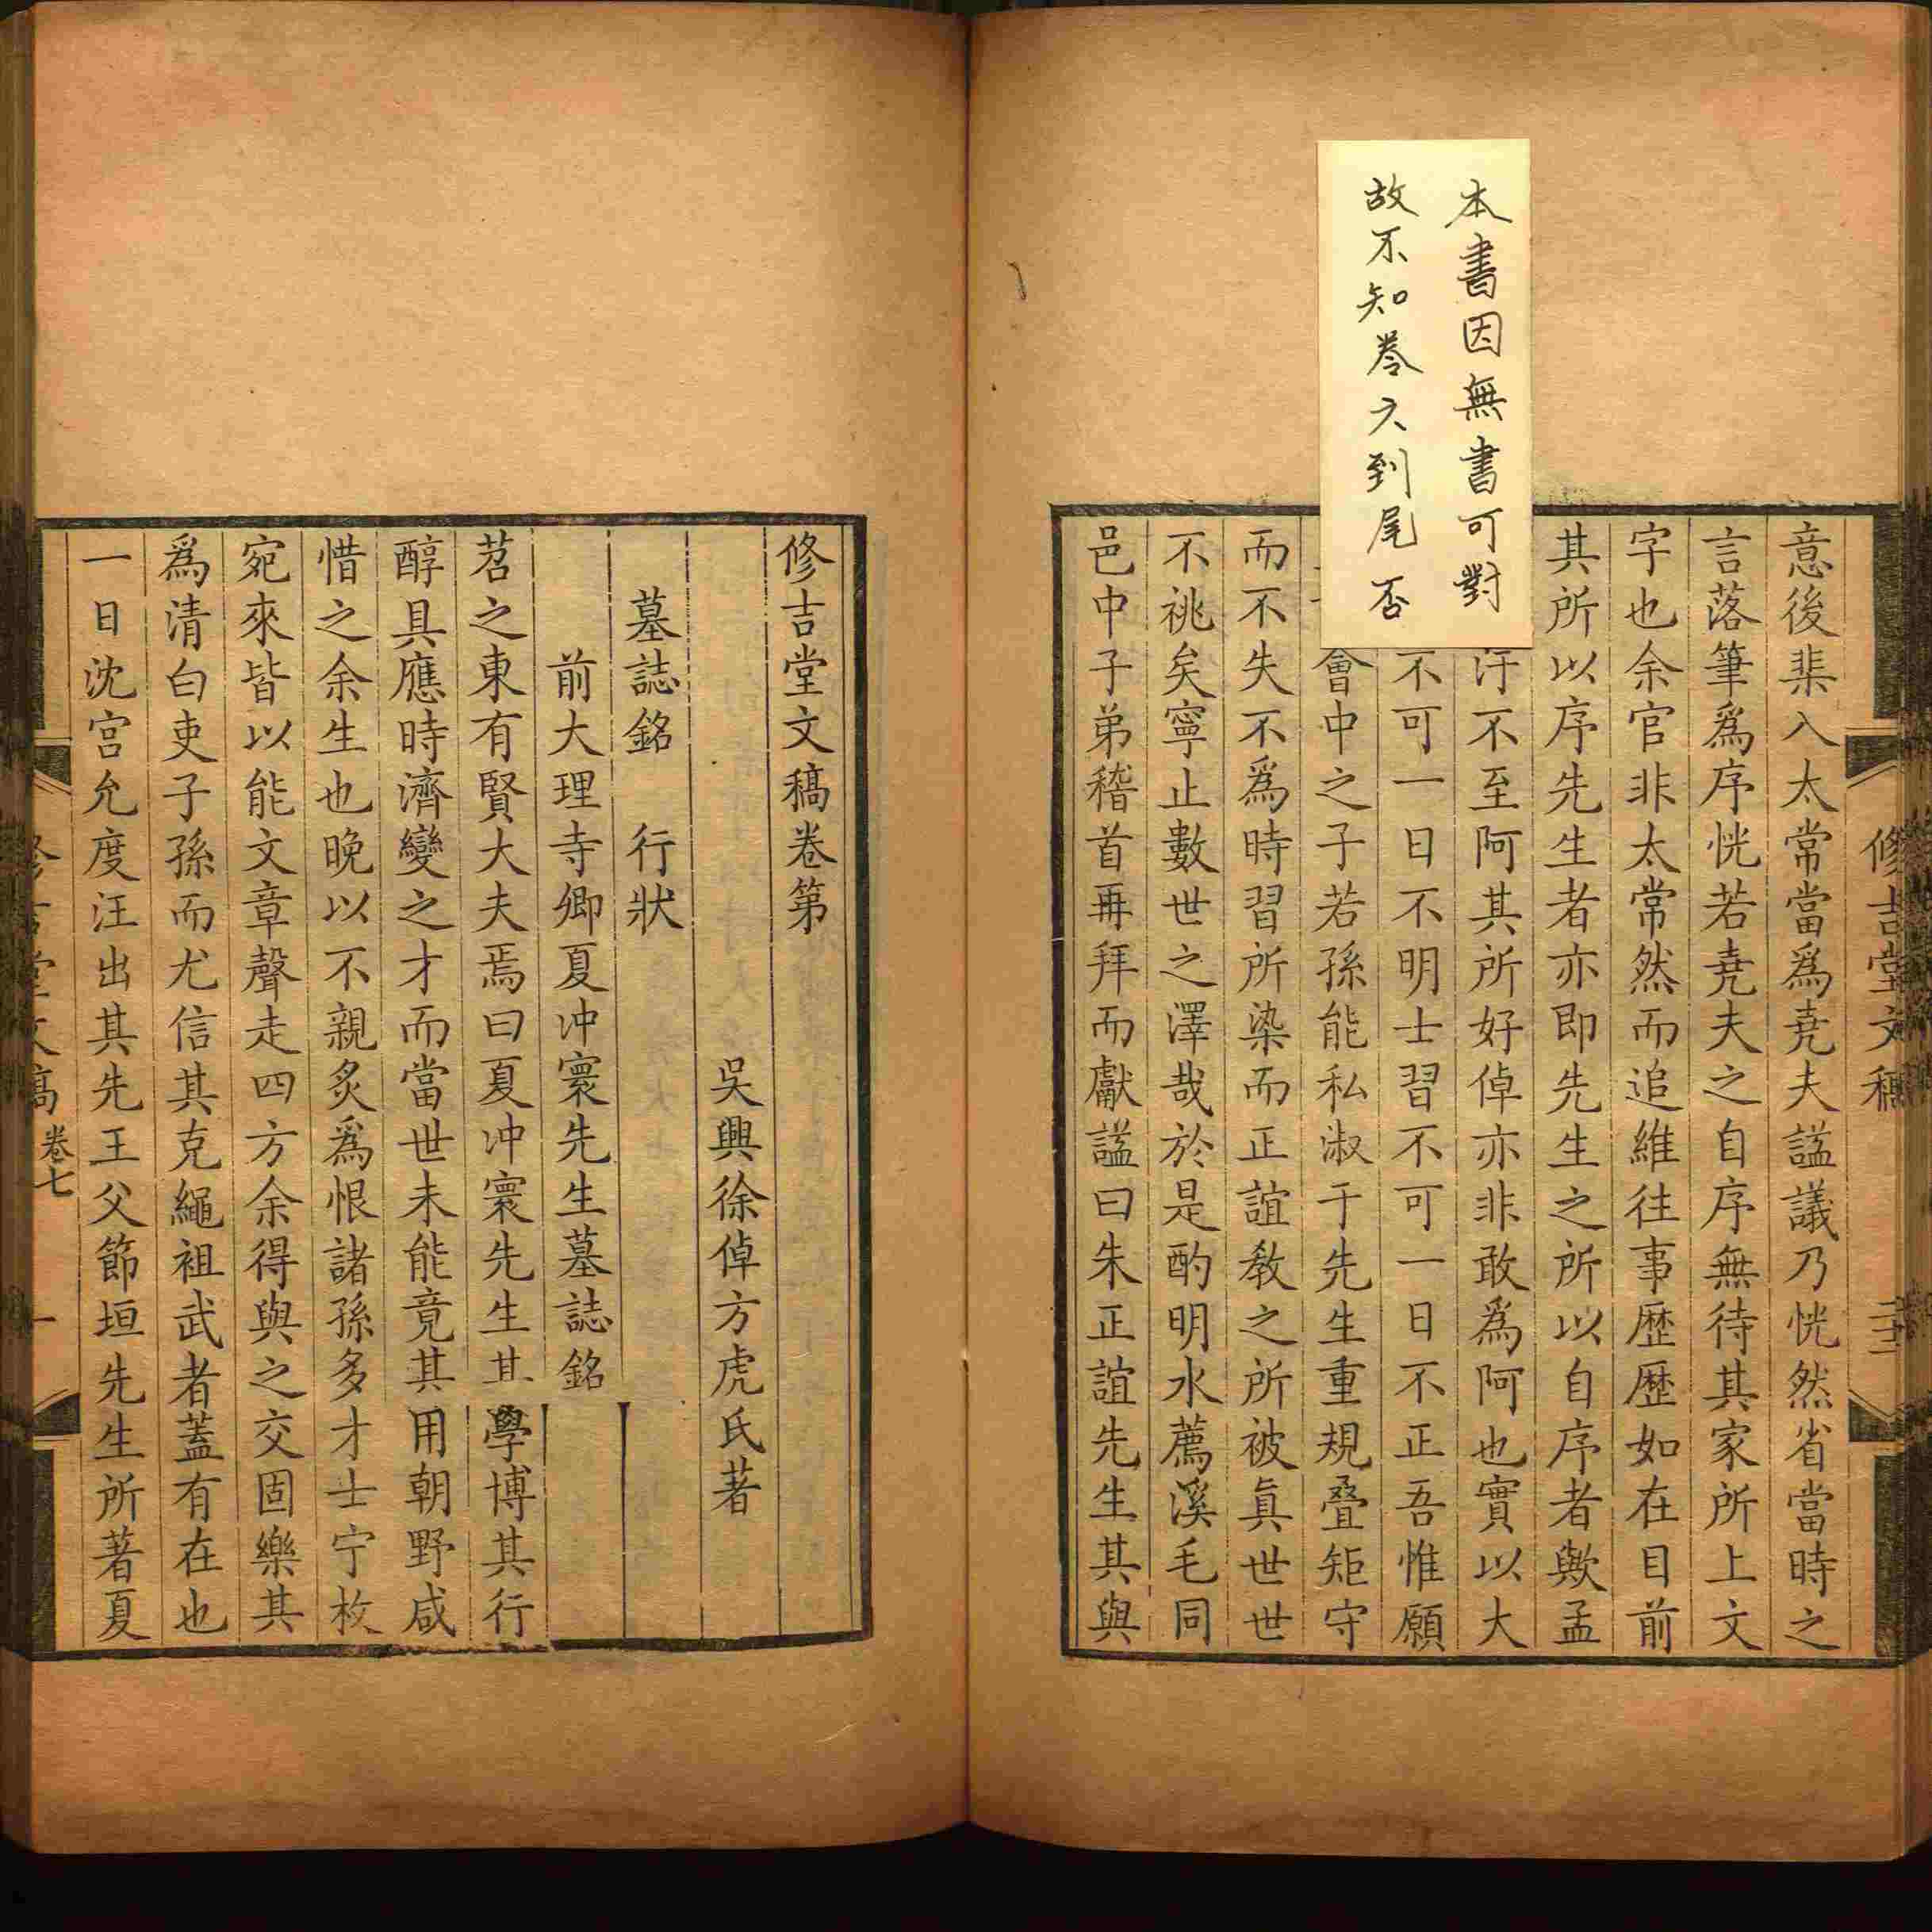 本書因無書可對
故不知卷六到尾否
修吉堂文稿
意後棐入太常當爲堯夫諡議乃恍然省當時之
言落筆爲序恍若堯夫之自序無待其家所上文
字也余官非太常然而追維往事歷歷如在目前
其所以序先生者亦即先生之所以自序者歟孟
汙不至阿其所好倬亦非敢爲阿也實以大
不可一日不明士習不可一日不正吾惟願
會中之子若孫能私淑于先生重規疊矩守
而不失不爲時習所染而正誼敎之所被眞世世
不祧矣寧止數世之澤哉於是酌明水薦溪毛同
邑中子弟稽首再拜而獻諡曰朱正誼先生其與
修吉堂文稿卷第
吳興徐倬方虎氏著
墓誌銘　行狀
前大理寺卿夏冲寰先生墓誌銘
苕之東有賢大夫焉曰夏冲寰先生其學博其行
醇具應時濟變之才而當世未能竟其用朝野咸
惜之余生也晚以不親炙爲恨諸孫多才士宁枚
宛來皆以能文章聲走四方余得與之交固樂其
爲清白吏子孫而尤信其克繩祖武者蓋有在也
一日沈宮允度汪出其先王父節垣先生所著夏
修吉堂文稿
卷七
一